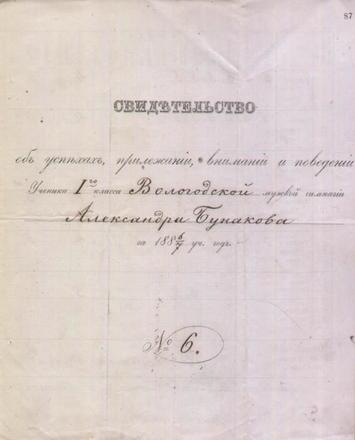 87
СВИДѢТЕЛЬСТВО
объ успѣхахъ, прилежаніи, вниманіи и поведеніи
Ученика Iго класса Вологодской мужской гимназіи
Александра Бунакова
за 1886/7 уч. годъ.
№ 6.